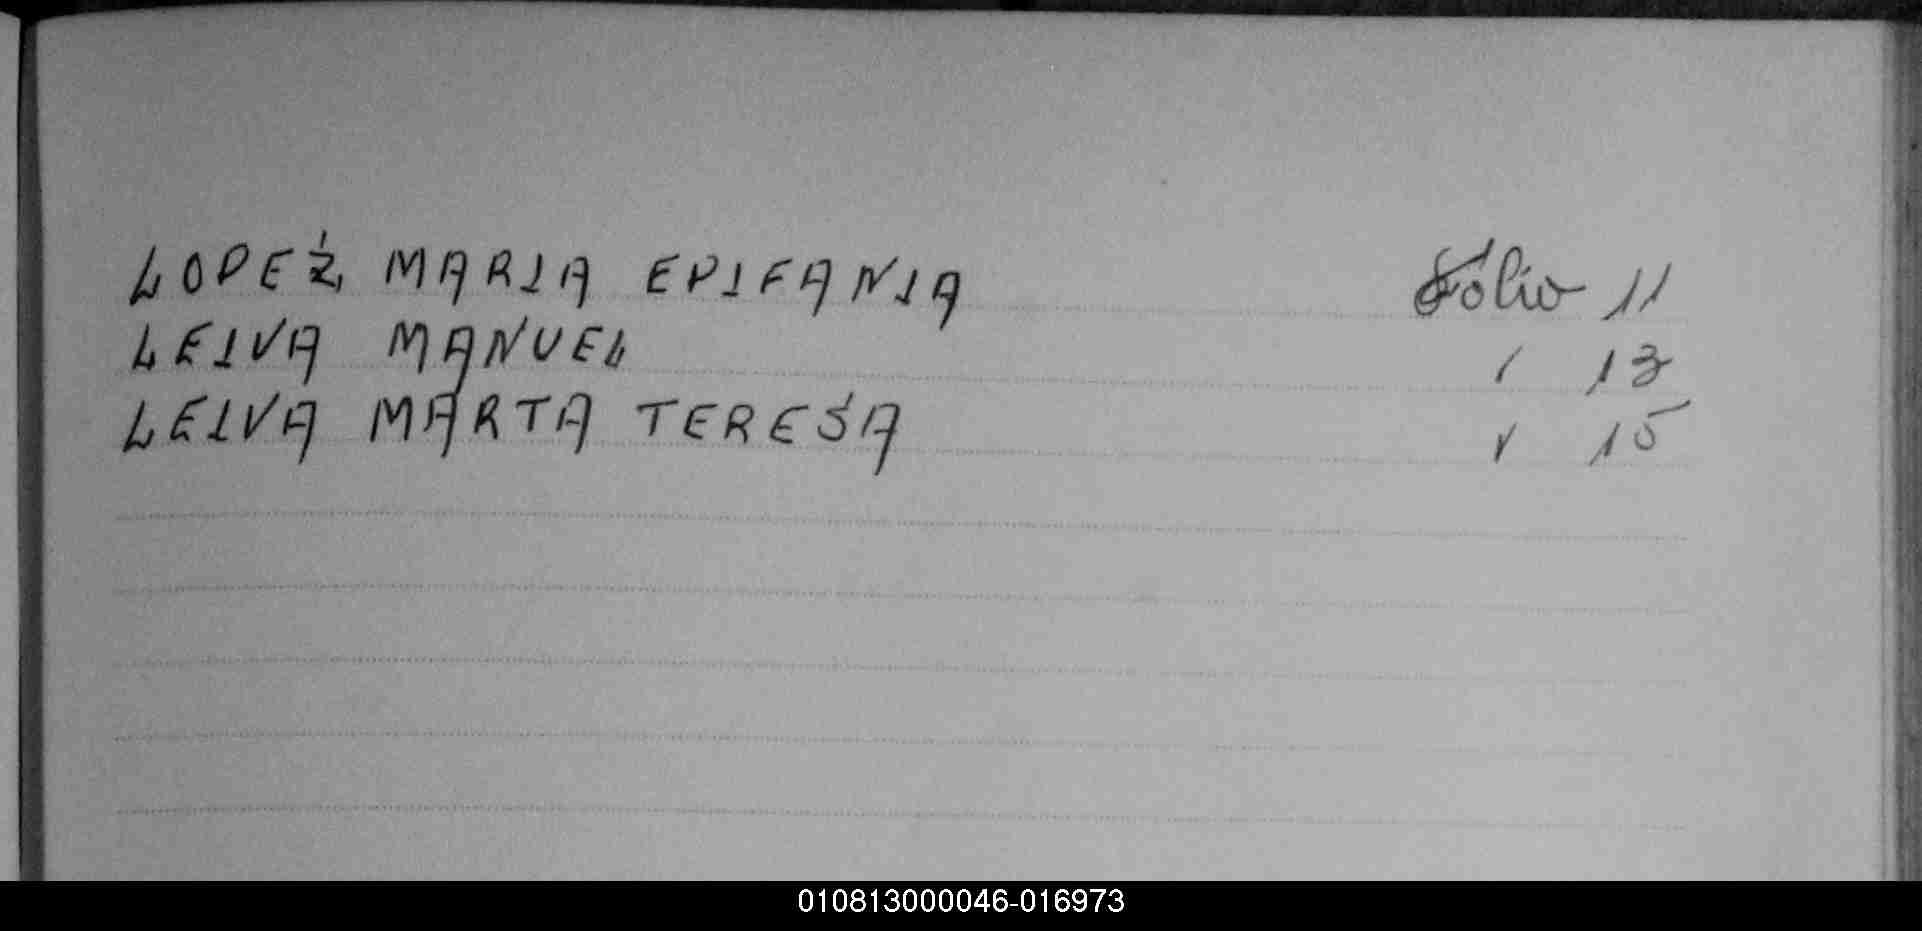 LOPEZ MARIA EPIFANIA Folio 11
LEIVA MANUEL " 13
LEIVA MARTA TERESA " 15
010813000046-016973